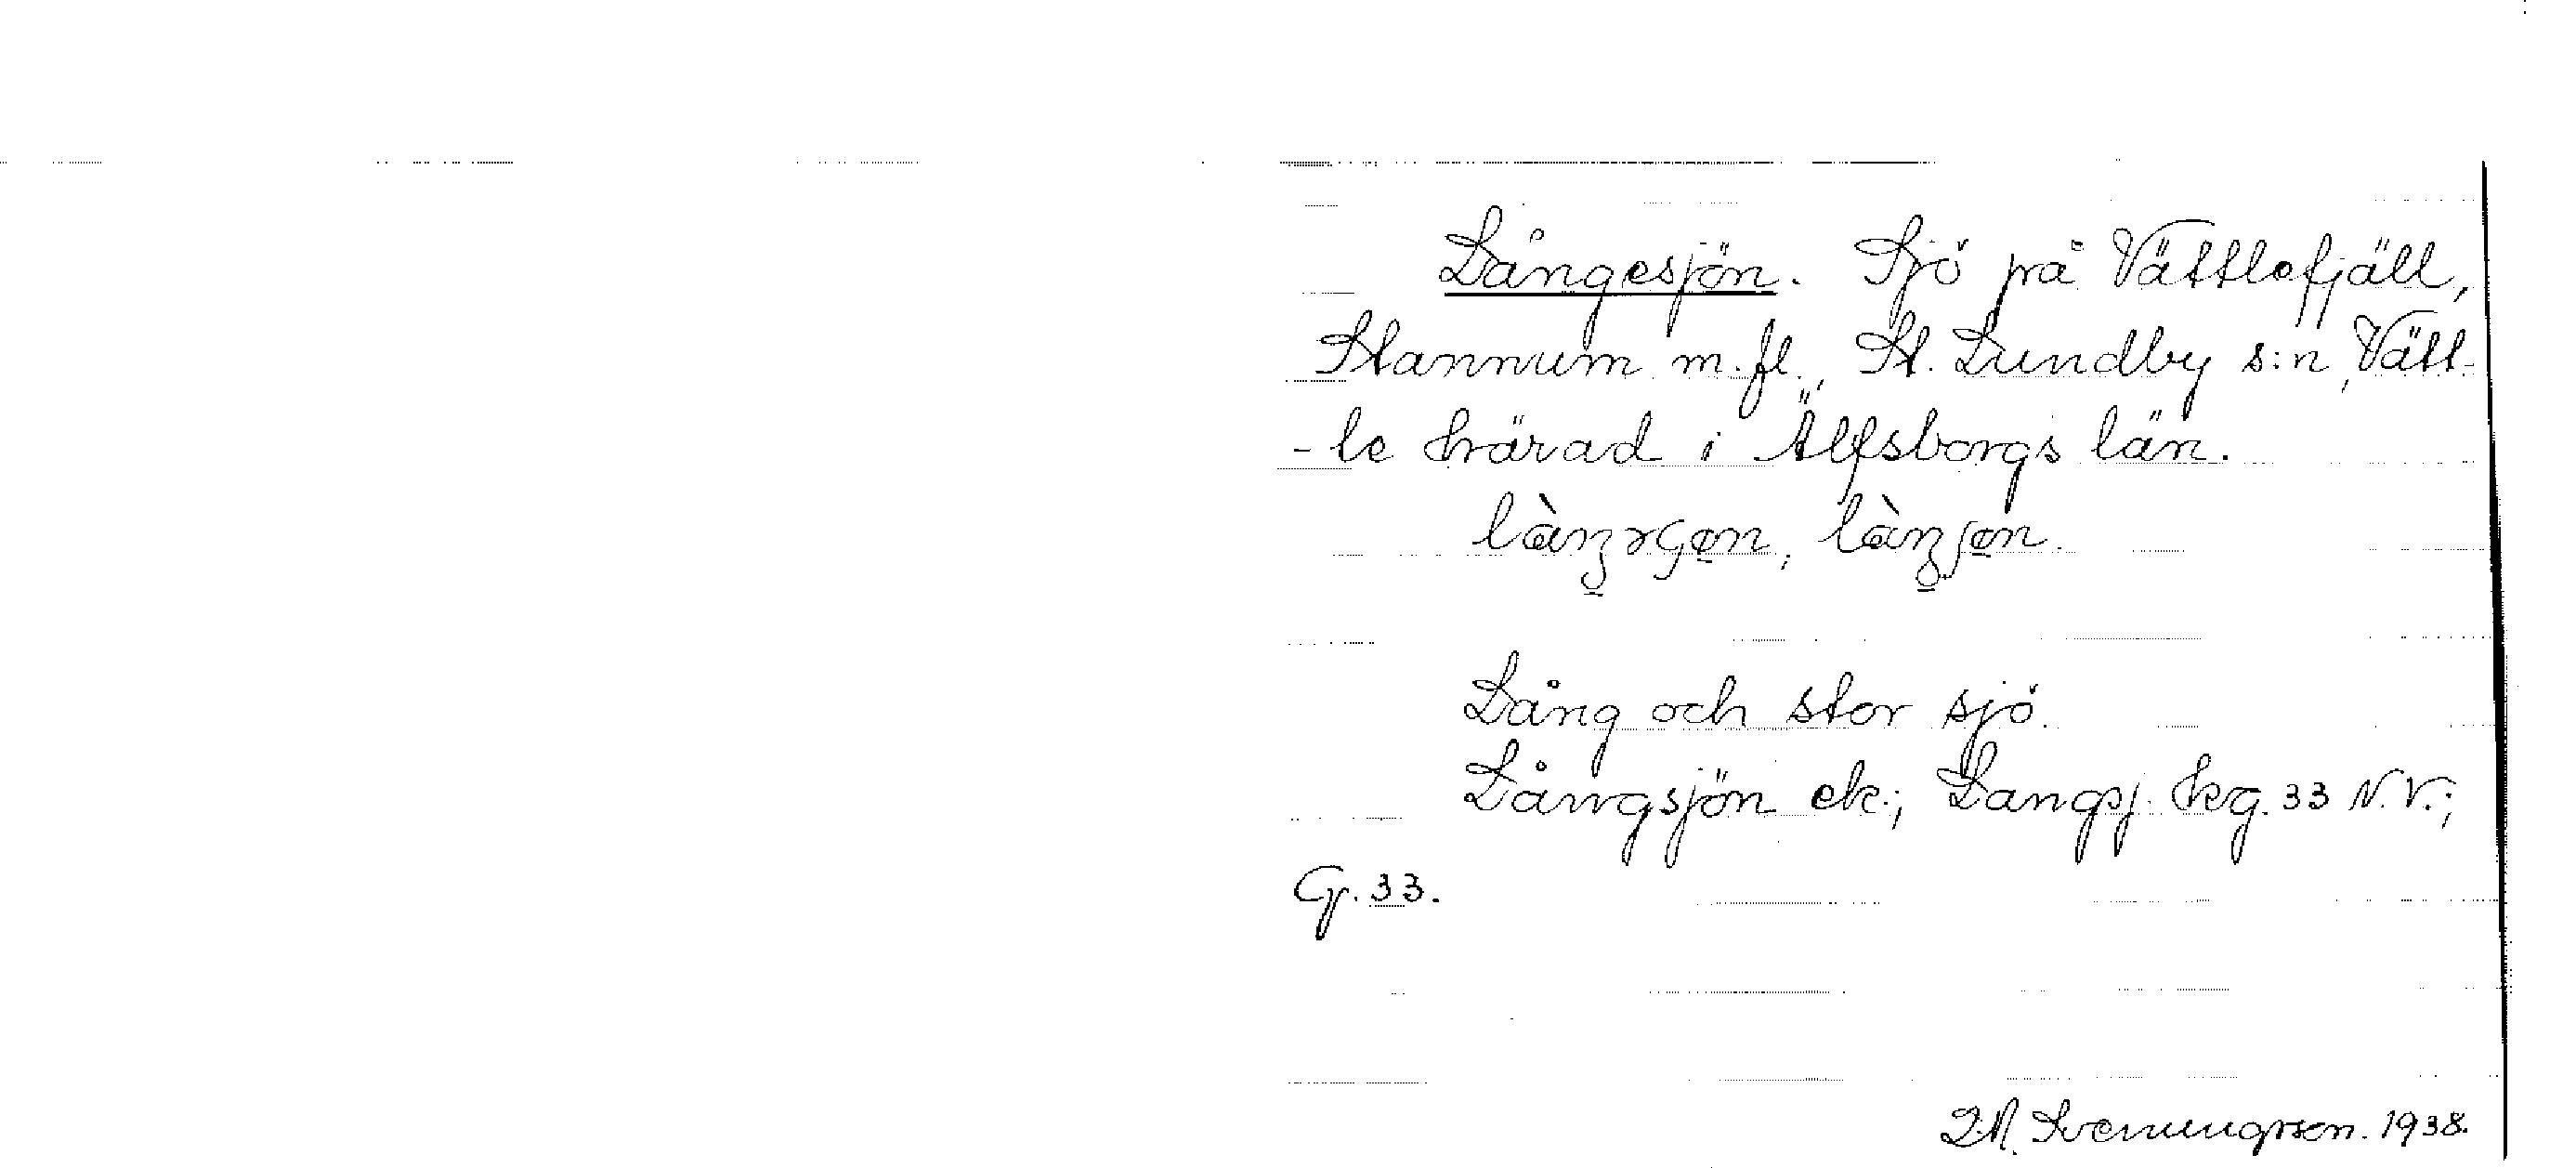 Långesjön. Sjö på Vättlefjäll,
Stannum m.fl., St. Lundby s:n, Vätt-
-le härad i Älfsborgs län.
Lång och stor sjö.
Långsjön ek.; Langsj. hkg. 33 N.V.;
G. 33.
Svenungsson. 1938.